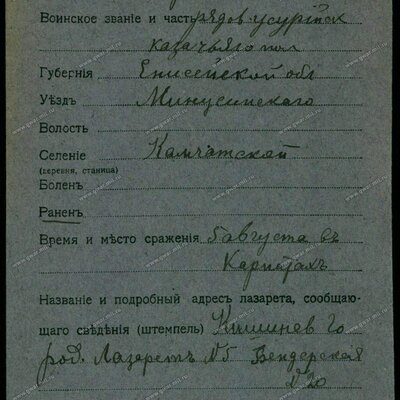 Воинское званіе и часть рядов. усурійск
казачьяго пол
Губернія Енисейской обл
Уѣздъ Минусинскаго
Волость
Селеніе Камчатской
(деревня, станица)
Боленъ
Раненъ
Время и мѣсто сраженія 5 августа въ
Карпатахъ
Названіе и подробный адресъ лазарета, сообщаю-
щаго свѣдѣнія (штемпель) Кишинев го
род. Лазаретъ №5 Бендерская
№20